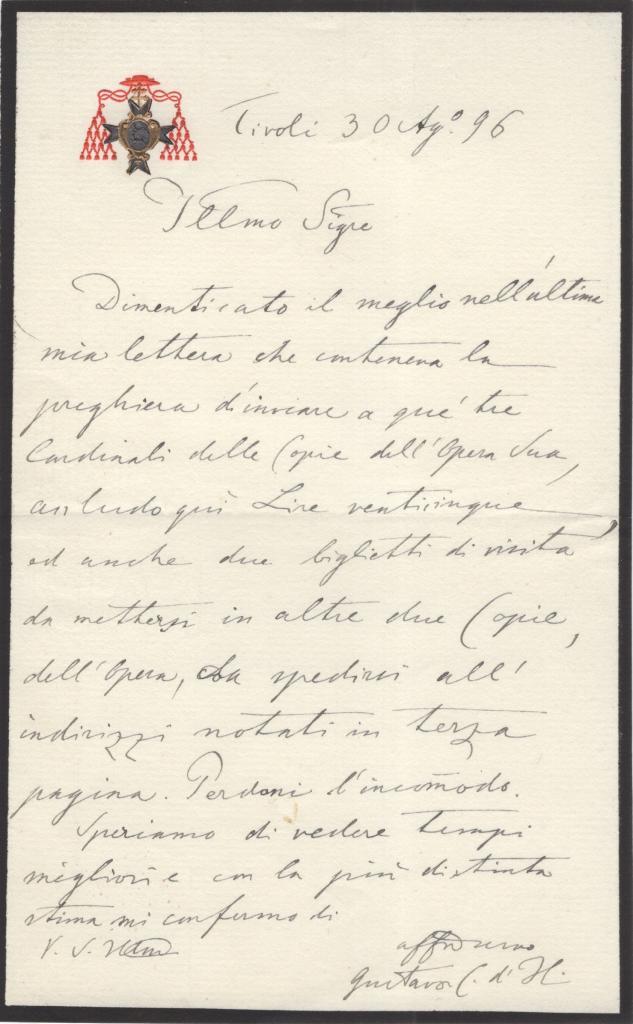 Tivoli 30 Ago. 96
Illmo Sigre
Dimenticato il meglio nell'ultima
mia lettera che conteneva la
preghiera d'inviare a que' tre
Cardinali delle Copie dell'Opera Sua,
accludo qui Lire venticinque,
ed anche due biglietti di visita
da mettersi in altre due Copie,
dell'Opera, da spedirsi all'
indirizzi notati in terza
pagina. Perdoni l'incomodo.
Speriamo di vedere tempi
migliori e con la più distinta
stima mi confermo di
V. S. Illma
affmo servo
Gustavo C. d'H.